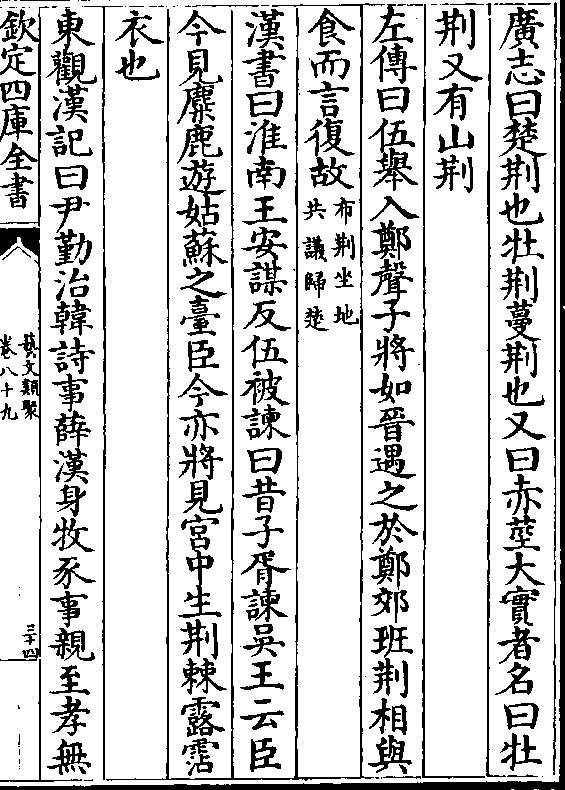 廣志曰楚荆也牡荆蔓荆也又曰赤莖大實者名曰牡
荆又有山荆
左傳曰伍舉入鄭聲子將如晉遇之於鄭郊班荆相與
食而言復故布荆坐地
共議歸楚
漢書曰淮南王安謀反伍被諫曰昔子胥諫吳王云臣
今見麋鹿遊姑蘇之臺臣今亦將見宫中生荆棘露霑
衣也
東觀漢記曰尹勤治韓詩事薛漢身牧豕事親至孝無
欽定四庫全書
藝文類聚
卷八十九
三十四